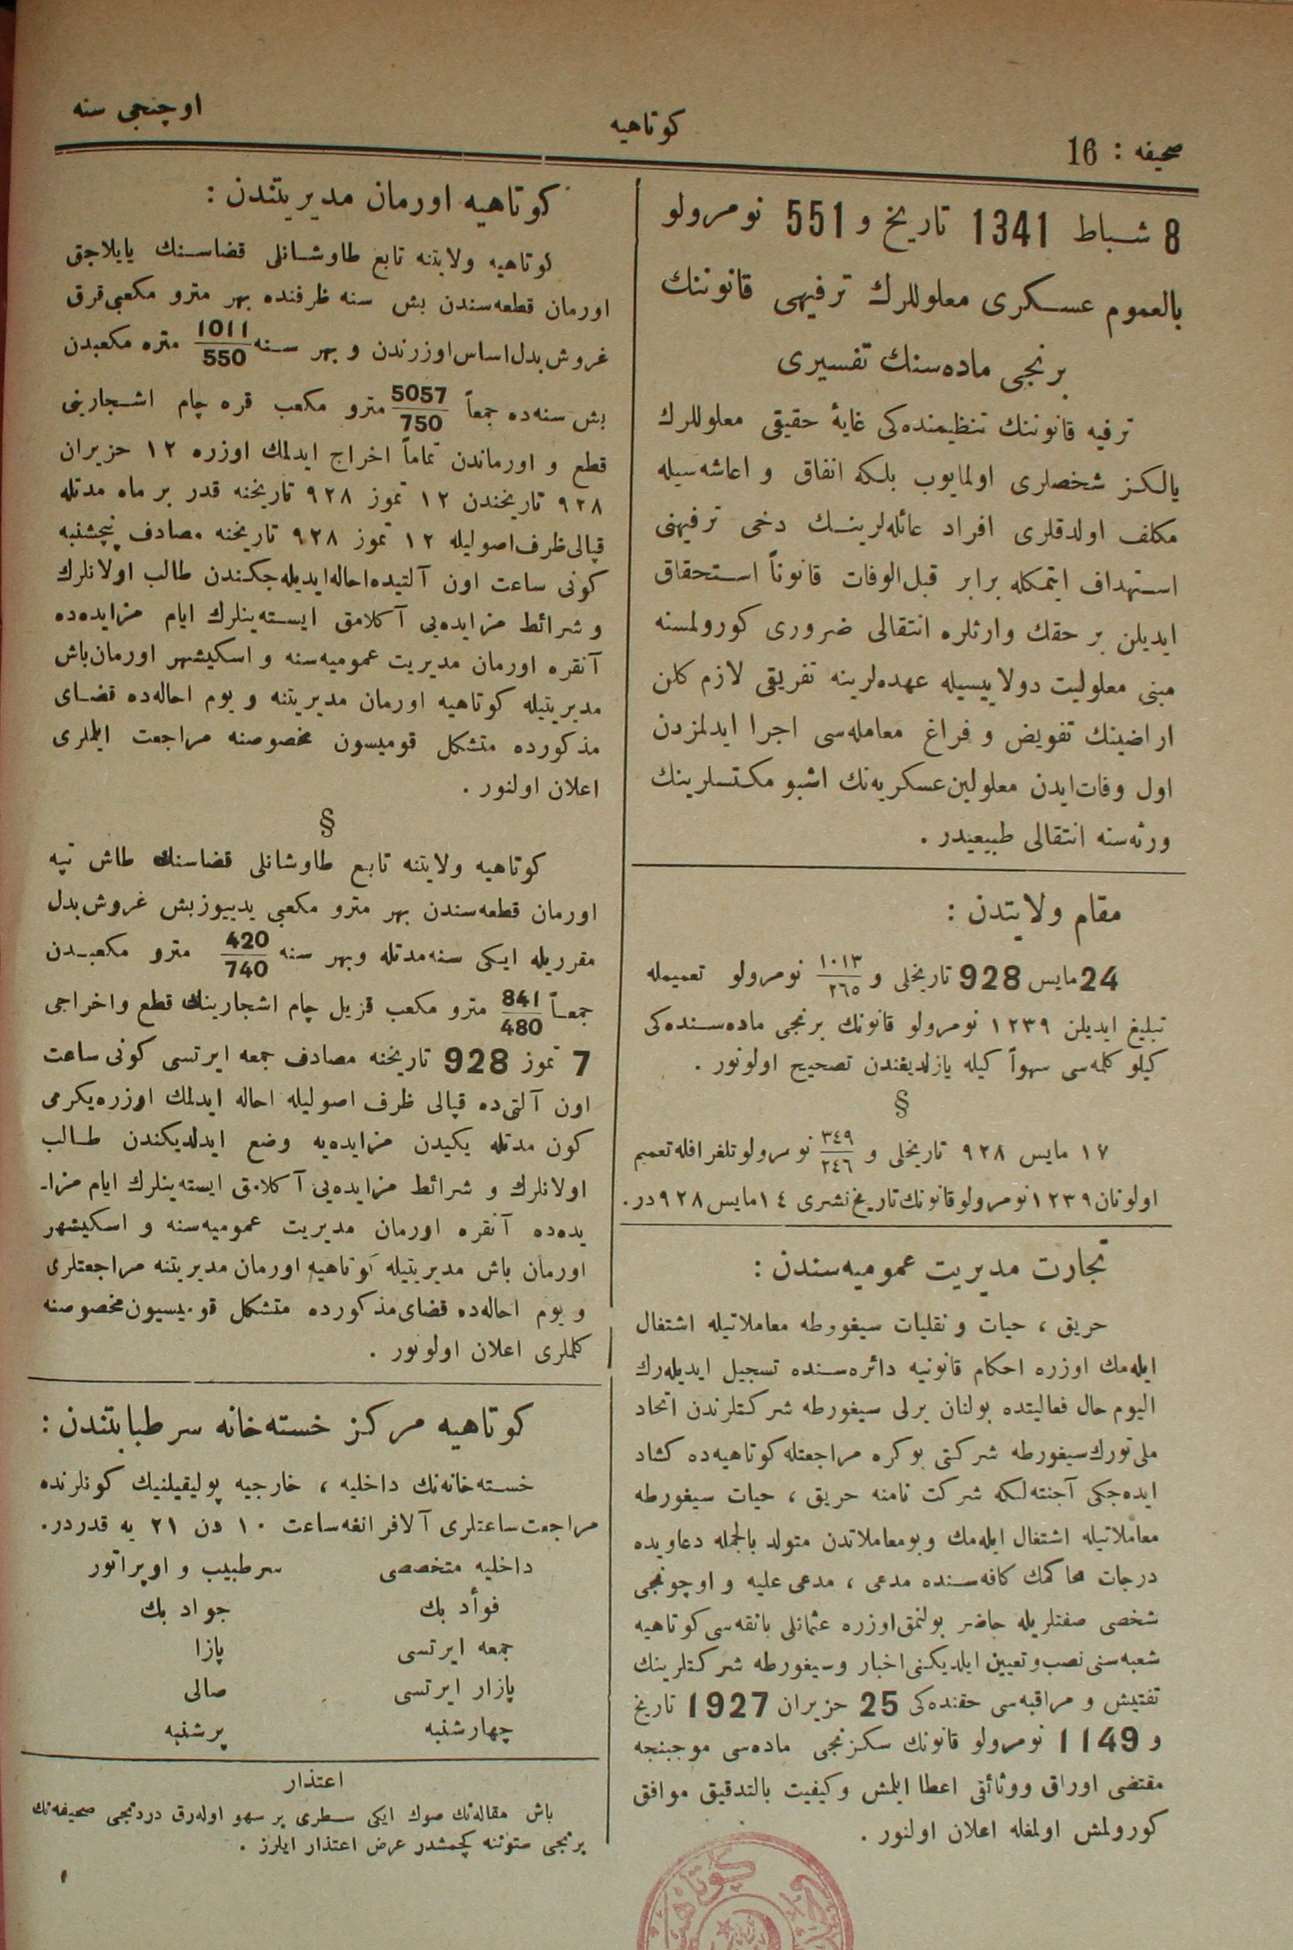 صحیفه : 16
كوتاهیه
اوچنجی سنه
8 شباط 1341 تاریخ و 551 نومرولو
بالعموم عسكری معلوللرك ترفیهی قانوننك
برنجی ماده‌سنك تفسیری
ترفیه قانوننك تنظیمنده‌كی غایهٔ حقیقی معلوللرك
یالكز شخصلری اولمایوب بلكه انفاق و اعاشه‌سیله
مكلف اولدقلری افراد عائله‌لرینك دخی ترفیهنی
استهداف ایتمكله برابر قبل‌الوفات قانوناً استحقاق
ایدیلن بر حقك وارثلره انتقالی ضروری كورولمسنه
مبنی معلولیت دولاییسیله عهده‌لرینه تفریقی لازم كلن
اراضینك تفویض و فراغ معامله‌سی اجرا ایدلمزدن
اول وفات‌ایدن معلولین‌عسكریه‌نك اشبو مكتسلرینك
ورثه‌سنه انتقالی طبیعیدر .
مقام ولایتدن :
24 مایس 928 تاریخلی و ١٠١٣/٢٦٥ نومرولو تعمیمله
تبلیغ ایدیلن ١٢٣٩ نومرولو قانونك برنجی ماده‌سنده‌كی
كیلو كلمه‌سی سهواً كیله یازلدیغندن تصحیح اولونور .
§
١٧ مایس ٩٢٨ تاریخلی و ٣٤٩/٢٤٦ نومرولو تلغرافله تعمیم
اولونان ١٢٣٩ نومرولو قانونك تاریخ نشری ١٤ مایس ٩٢٨ در.
تجارت مدیریت عمومیه‌سندن :
حریق ، حیات و نقلیات سیغورطه معاملاتیله اشتغال
ایله‌مك اوزره احكام قانونیه دائره‌سنده تسجیل ایدیله‌رك
الیوم حال فعالیتده بولنان یرلی سیغورطه شركتلرندن اتحاد
ملی تورك سیغورطه شركتی بوكره مراجعتله كوتاهیه‌ده كشاد
ایده‌جكی آجنته‌لكه شركت نامنه حریق ، حیات سیغورطه
معاملاتیله اشتغال ایله‌مك وبومعاملاتدن متولد بالجمله دعاویده
درجات محاكمك كافه‌سنده مدعی ، مدعی علیه و اوچونجی
شخصی صفتلریله حاضر بولنمق اوزره عثمانلی بانقه‌سی كوتاهیه
شعبه‌سنی نصب‌وتعیین ایلدیكنی اخبار وسیغورطه شركتلرینك
تفتیش و مراقبه‌سی حقنده‌كی 25 حزیران 1927 تاریخ
و 1149 نومرولو قانونك سكزنجی ماده‌سی موجبنجه
مقتضی اوراق ووثائقی اعطا ایلمش وكیفیت بالتدقیق موافق
كورولمش اولمغله اعلان اولنور .
كوتاهیه اورمان مدیریتندن :
كوتاهیه ولایتنه تابع طاوشانلی قضاسنك یایلاجق
اورمان قطعه‌سندن بش سنه ظرفنده بهر مترو مكعبی قرق
غروش بدل‌اساس اوزرندن و بهر سنه 1011/550 متره مكعبدن
بش سنه‌ده جمعاً 5057/750 مترو مكعب قره چام اشجارینی
قطع و اورماندن تماماً اخراج ایدلمك اوزره ١٢ حزیران
٩٢٨ تاریخندن ١٢ تموز ٩٢٨ تاریخنه قدر بر ماه مدتله
قپالی ظرف‌اصولیله ١٢ تموز ٩٢٨ تاریخنه مصادف پنچشنبه
كونی ساعت اون آلتیده‌احاله‌ایدیله‌جكندن طالب اولانلرك
و شرائط مزایده‌یی آكلامق ایسته‌ینلرك ایام مزایده‌ده
آنقره اورمان مدیریت عمومیه‌سنه و اسكیشهر اورمان‌باش
مدیریتیله كوتاهیه اورمان مدیریتنه و یوم احاله‌ده قضای
مذكورده متشكل قومیسون مخصوصنه مراجعت ایلملری
اعلان اولنور .
§
كوتاهیه ولایتنه تابع طاوشانلی قضاسنك طاش تپه
اورمان قطعه‌سندن بهر مترو مكعبی یدییوزبش غروش بدل
مقرریله ایكی سنه‌مدتله وبهر سنه 420/740 مترو مكعبدن
جمعاً 841/480 مترو مكعب قزیل چام اشجارینك قطع واخراجی
7 تموز 928 تاریخنه مصادف جمعه ایرتسی كونی ساعت
اون آلتی‌ده قپالی ظرف اصولیله احاله ایدلمك اوزره یكرمی
كون مدتله یكیدن مزایده‌یه وضع ایدلدیكندن طالب
اولانلرك و شرائط مزایده‌یی آكلامق ایسته‌ینلرك ایام مزا‌ـ
یده‌ده آنقره اورمان مدیریت عمومیه‌سنه و اسكیشهر
اورمان باش مدیریتیله كوتاهیه اورمان مدیریتنه مراجعتلری
و یوم احاله‌ده قضای مذكورده متشكل قومیسیون مخصوصنه
كلملری اعلان اولونور .
كوتاهیه مركز خسته‌خانه سرطبابتندن :
خسته‌خانه‌نك داخلیه ، خارجیه پولیقلینیك كونلرنده
مراجعت ساعتلری آلافرانغه ساعت ١٠ دن ٢١ یه قدردر.
داخلیه متخصصی سرطبیب و اوپراتور
فوأد بك جواد بك
جمعه ایرتسی پازا
پازار ایرتسی صالی
چهارشنبه پرشنبه
اعتذار
باش مقاله‌نك صوك ایكی سطری بر سهو اوله‌رق دردنجی صحیفه‌نك
برنجی ستوننه كچمشدر عرض اعتذار ایلرز .
كوتاهیه